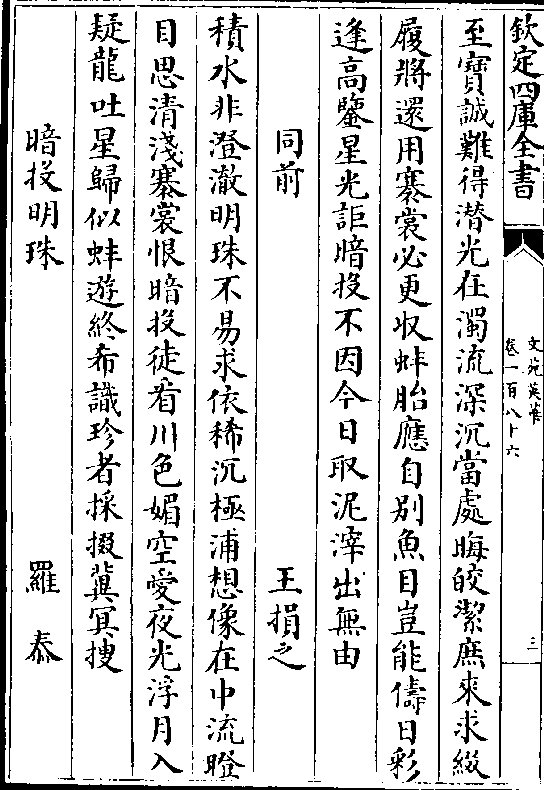 欽定四庫全書
文苑英華
卷一百八十六
三
至寳誠難得潜光在濁流深沉當處晦皎潔庶來求綴
履將還用褰裳必更収蚌胎應自别魚目豈能儔日彩
逢高鑒星光詎暗投不因今日取泥滓出無由
同前 王損之
積水非澄澈明珠不易求依稀沉極浦想像在中流瞪
目思清淺褰裳恨暗投徒看川色媚空愛夜光浮月入
疑龍吐星歸似蚌遊終希識珍者採掇冀冥搜
暗投明珠 羅㤗